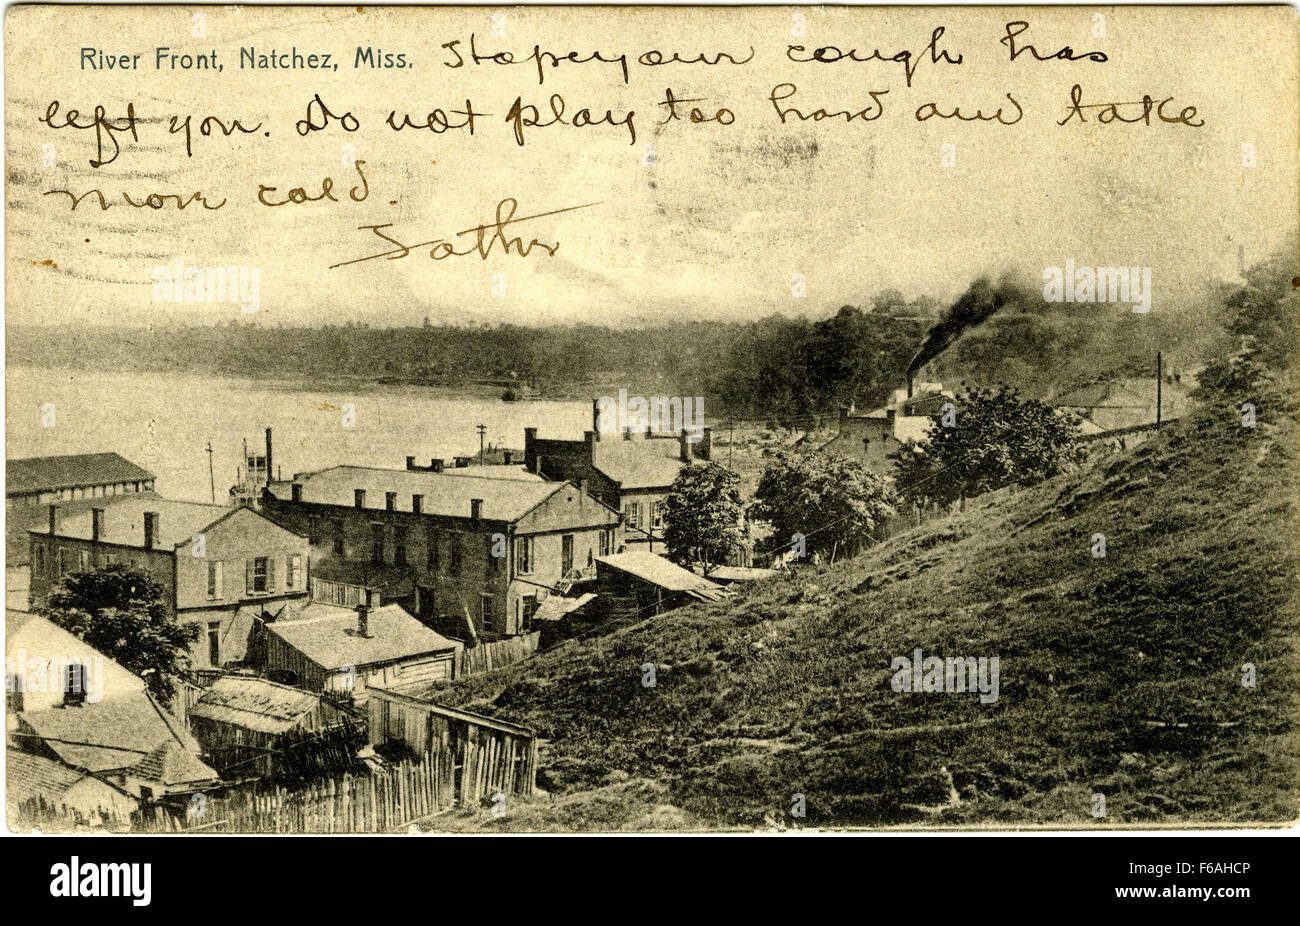 River Front, Natchez, Miss. Hope your cough has
left you. Do not play too hard and take
more cold.
Father
alamy stock photo
alamy
F6AHCP
www.alamy.com